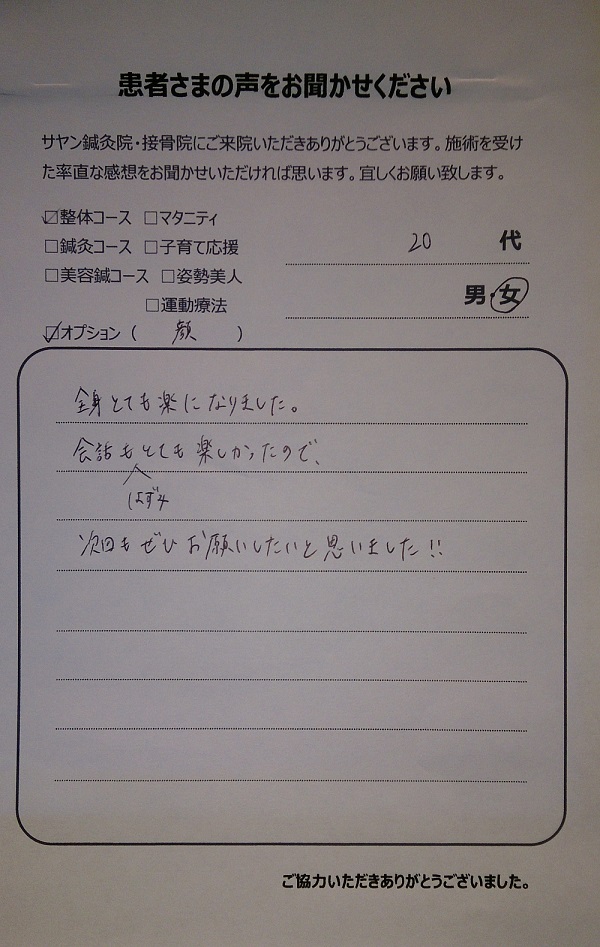 患者さまの声をお聞かせください
サヤン鍼灸院・接骨院にご来院いただきありがとうございます。施術を受け
た率直な感想をお聞かせいただければ思います。宜しくお願い致します。
☑整体コース □マタニティ
□鍼灸コース □子育て応援
20 代
□美容鍼コース □姿勢美人
男・女
□運動療法
☑オプション ( 顔 )
全身とても楽になりました。
会話もとても楽しかったので、
はずみ
次回もぜひお願いしたいと思いました!!
ご協力いただきありがとうございました。